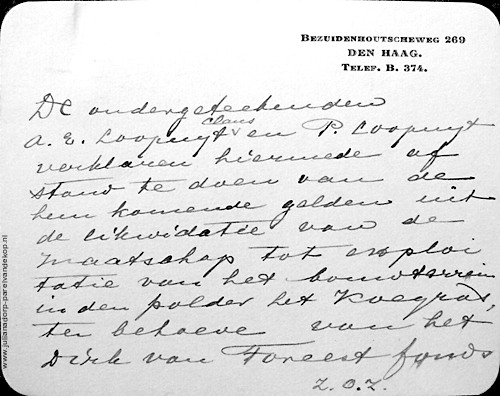 BEZUIDENHOUTSCHEWEG 269
DEN HAAG.
TELEF. B. 374.
De ondergeteekenden
Claus
A. E. Loopuyt v en P. Loopuyt
verklaren hiermede af
stand te doen van de
hun komende gelden uit
de likwidatie van de
Maatschap tot exploi
tatie van het bouwterrein
in den polder het Koegras,
ten behoeve van het
Dirk van Foreest fonds
Z.O.Z.
www.julianadorp-parelvandekop.nl